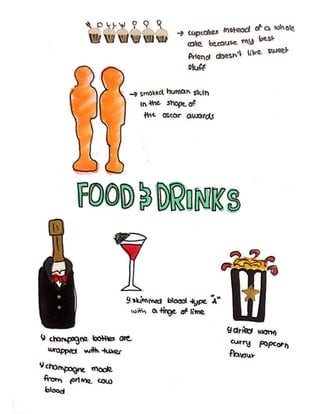 → cupcakes instead of a whole
cake because my best
friend doesn't like sweet
stuff
→ smoked human skin
in the shape of
the oscar awards
FOOD & DRINKS
skimmed blood type "A"
with a tinge of lime
champagne bottles are
wrapped with tuxes
champagne made
from prime cow
blood
dried warm
curry popcorn
flavour